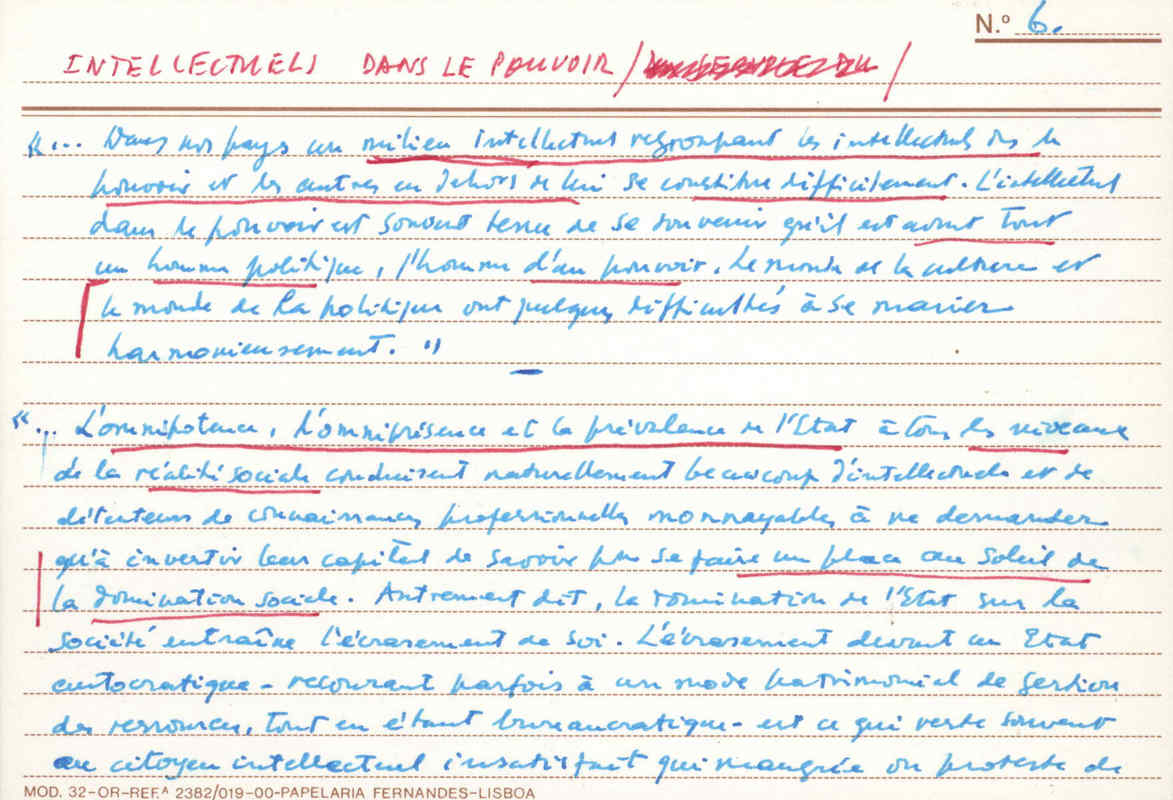 N.º 6.
INTELLECTUELS DANS LE POUVOIR / /
"... Dans nos pays un milieu intellectuel regroupant les intellectuels ds le
pouvoir et les autres en dehors de lui se constitue difficilement. L'intellectuel
dans le pouvoir est souvent tenu de se souvenir qu'il est avant tout
un homme politique, l'homme d'un pouvoir. Le monde de la culture et
le monde de la politique ont quelques difficultés à se marier
harmonieusement. "
"... L'omnipotence, l'omniprésence et la prévalence de l'Etat à tous les niveaux
de la réalité sociale conduisent naturellement beaucoup d'intellectuels et de
détenteurs de connaissances professionnelles monnayables à ne demander
qu'à investir leur capital de savoir pr se faire une place au soleil de
la domination sociale. Autrement dit, la domination de l'Etat sur la
société entraîne l'écrasement de soi. L'écrasement devant un Etat
autocratique - recourant parfois à un mode patrimonial de gestion
des ressources, tout en étant bureaucratique - est ce qui reste souvent
au citoyen intellectuel insatisfait qui maugrée ou proteste de
MOD. 32-OR-REF.ª 2382/019-00-PAPELARIA FERNANDES-LISBOA